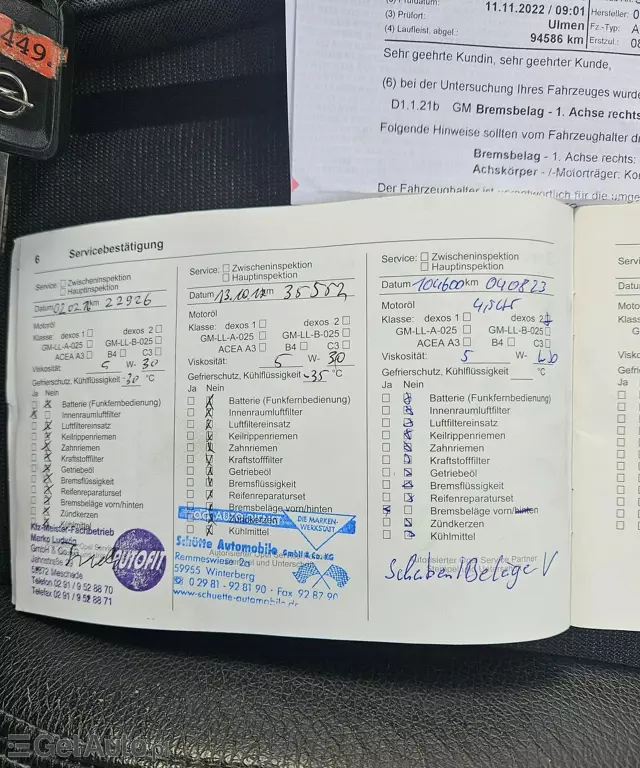 449.
(3) Prüfort:
(4) Laufleist. abgel.:
11.11.2022 / 09:01
Ulmen
94586 km
Hersteller:
Fz.-Typ:
Erstzul.:
Sehr geehrte Kundin, sehr geehrter Kunde,
(6) bei der Untersuchung Ihres Fahrzeuges wurde
D1.1.21b GM Bremsbelag - 1. Achse rechts
Folgende Hinweise sollten vom Fahrzeughalter
Bremsbelag - 1. Achse rechts:
Achskörper - /-Motorträger:
Der Fahrzeughalter ist verantwortlich für die
6 Servicebestätigung
Service: Zwischeninspektion
Hauptinspektion
Datum km 22926
Motoröl
Klasse: dexos 1 dexos 2
GM-LL-A-025 GM-LL-B-025
ACEA A3 B4 C3
Viskosität: 5 W- 30
Gefrierschutz, Kühlflüssigkeit -30 °C
Ja Nein
Batterie (Funkfernbedienung)
Innenraumluftfilter
Luftfiltereinsatz
Keilrippenriemen
Zahnriemen
Kraftstofffilter
Getriebeöl
Bremsflüssigkeit
Reifenreparaturset
Bremsbeläge vorn/hinten
Zündkerzen
Kühlmittel
Kfz-Meister-Fachbetrieb
Marko Ludwig
GmbH & Co.
AUTOFIT
Meschede
Telefon 02 91 / 9 52 88 70
Telefax 02 91 / 9 52 88 71
Service: Zwischeninspektion
Hauptinspektion
Datum 13.10.17 km 35552
Motoröl
Klasse: dexos 1 dexos 2
GM-LL-A-025 GM-LL-B-025
ACEA A3 B4 C3
Viskosität: 5 W- 30
Gefrierschutz, Kühlflüssigkeit -35 °C
Ja Nein
Batterie (Funkfernbedienung)
Innenraumluftfilter
Luftfiltereinsatz
Keilrippenriemen
Zahnriemen
Kraftstofffilter
Getriebeöl
Bremsflüssigkeit
Reifenreparaturset
Bremsbeläge vorn/hinten
Zündkerzen
Kühlmittel
DIE MARKEN-
WERKSTATT
Schütte Automobile GmbH & Co. KG
Remmeswiese 2a
59955 Winterberg
0 29 81 - 92 81 90 · Fax 92 87 90
www.schuette-automobile.de
Service: Zwischeninspektion
Hauptinspektion
Datum 104600 km 040823
Motoröl 4,5 Ltr
Klasse: dexos 1 dexos 2
GM-LL-A-025 GM-LL-B-025
ACEA A3 B4 C3
Viskosität: 5 W-
Gefrierschutz, Kühlflüssigkeit °C
Ja Nein
Batterie (Funkfernbedienung)
Innenraumluftfilter
Luftfiltereinsatz
Keilrippenriemen
Zahnriemen
Kraftstofffilter
Getriebeöl
Bremsflüssigkeit
Reifenreparaturset
Bremsbeläge vorn/hinten
Zündkerzen
Kühlmittel
Autorisierter Opel Service Partner
Scheiben / Beläge V
GetAuto